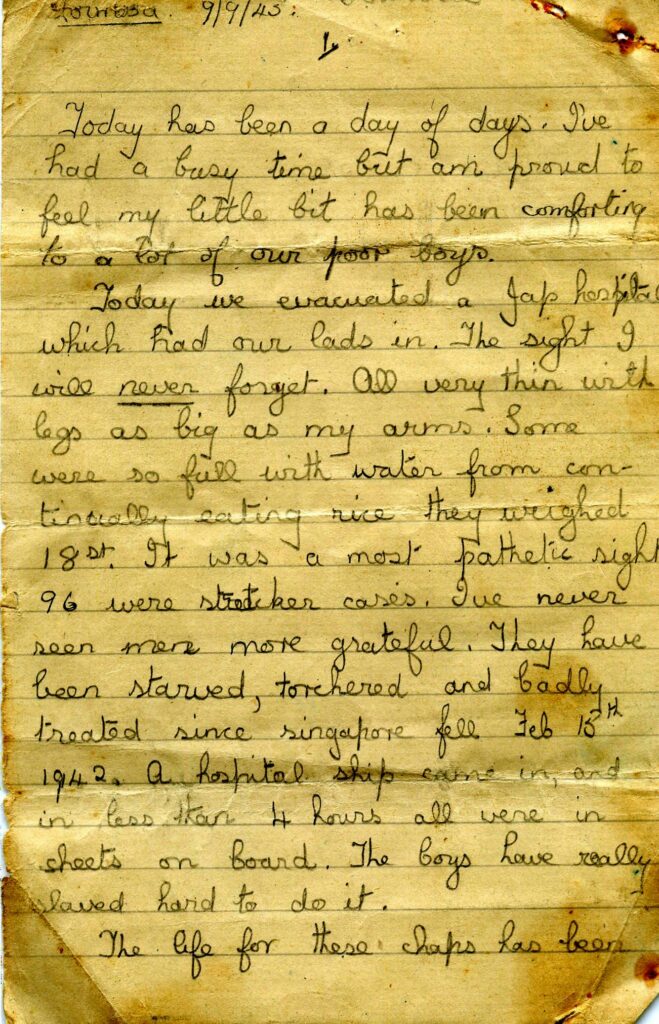 Formosa 9/9/45.
1.
Today has been a day of days. I've
had a busy time but am proud to
feel my little bit has been comforting
to a lot of our poor boys.
Today we evacuated a Jap hospital
which had our lads in. The sight I
will never forget. All very thin with
legs as big as my arms. Some
were so full with water from con-
tinually eating rice they weighed
18st. It was a most pathetic sight
96 were stretcker cases. I've never
seen men more grateful. They have
been starved, torchered and badly
treated since singapore fell Feb 15th
1942. A hospital ship came in, and
in less than 4 hours all were in
sheets on board. The boys have really
slaved hard to do it.
The life for these chaps has been